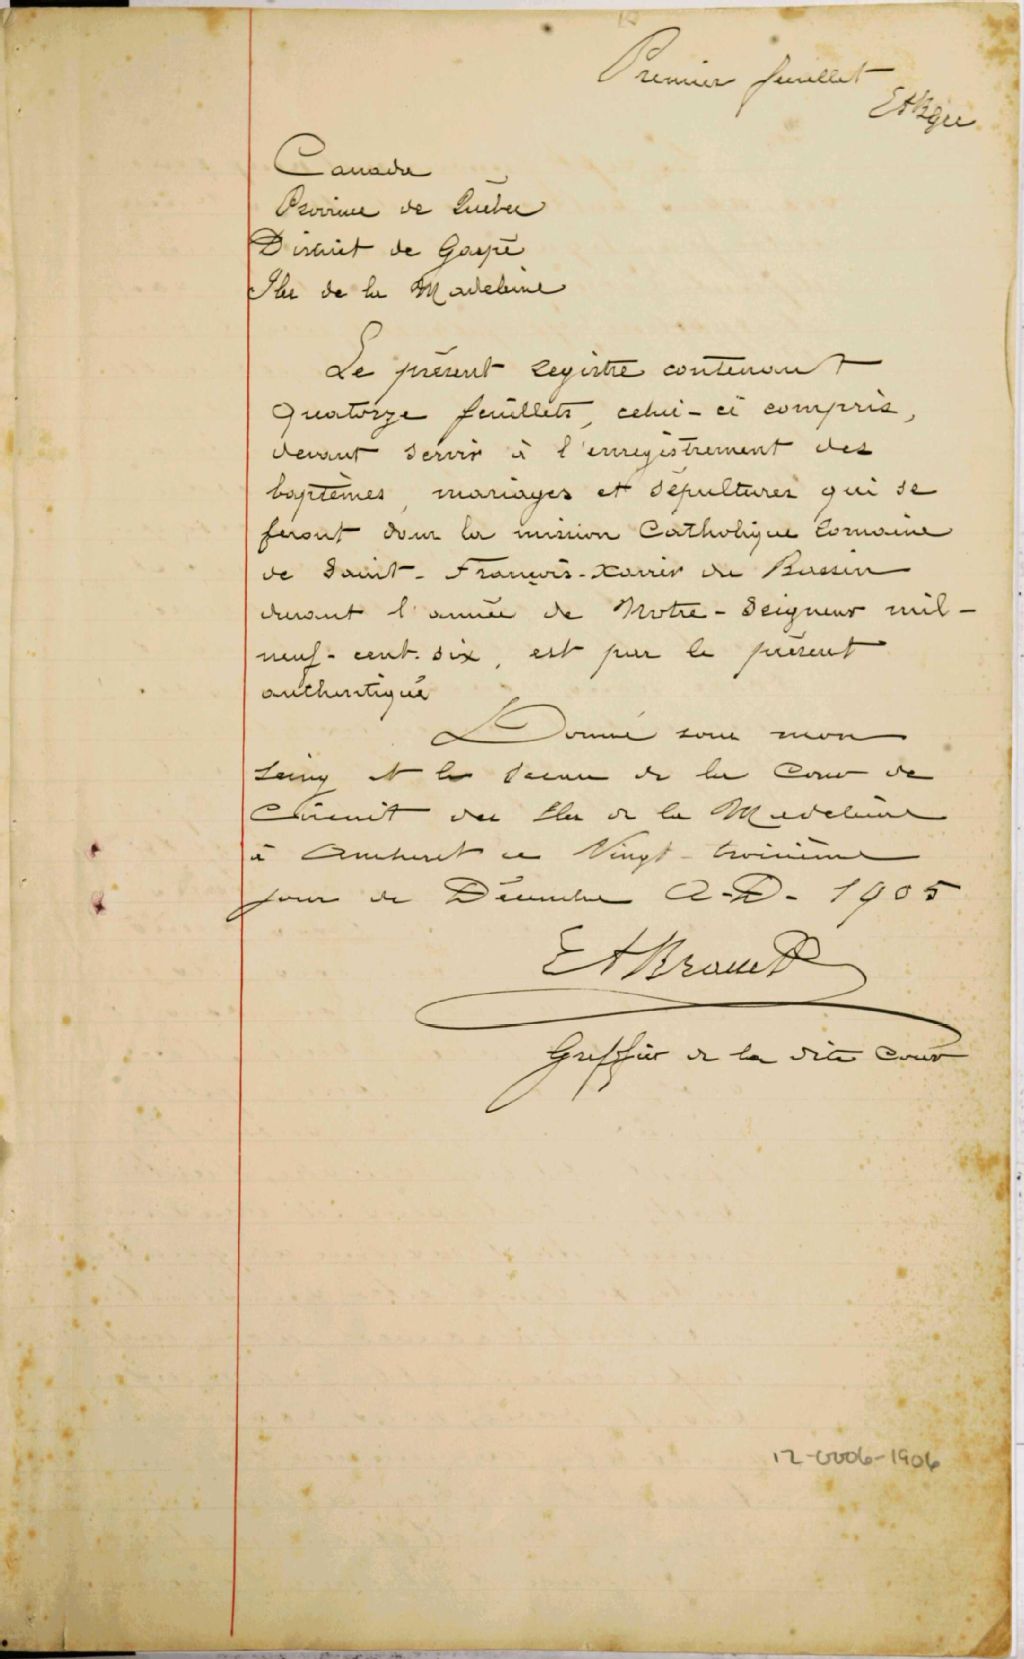 Premier feuillet
Canada
Province de Québec
District de Gaspé
Iles de la Madeleine
Le présent registre contenant
Quatorze feuillets, celui-ci compris,
devant servir à l'enregistrement des
baptêmes, mariages et sépultures qui se
feront dans la mission Catholique romaine
de Saint-François-Xavier du Bassin
durant l'année de Notre-Seigneur mil-
neuf-cent-six, est par le présent
authentiqué
Donné sous mon
seing et le sceau de la Cour de
Circuit des Iles de la Madeleine
à Amherst ce Vingt-troisième
jour de Décembre A-D- 1905
Greffier de la dite Cour
12-0006-1906